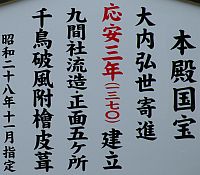 本殿国宝
大内弘世寄進
応安三年(一三七〇)建立
九間社流造・正面五ヶ所
千鳥破風附檜皮葺
昭和二十八年十一月指定